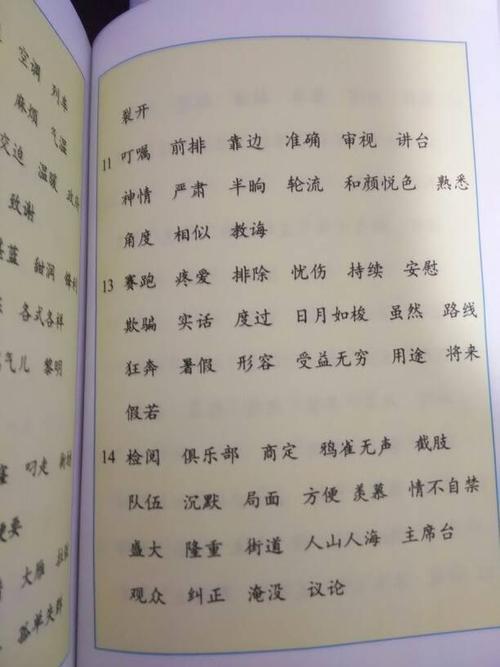 空调 列车
麻烦 气温
交迫 温暖
致谢
湛蓝 甜润
各式各样
气儿 黎明
叼走
大雁
孤单失群
裂开
11 叮嘱 前排 靠边 准确 审视 讲台
神情 严肃 半晌 轮流 和颜悦色 熟悉
角度 相似 教诲
13 赛跑 疼爱 排除 忧伤 持续 安慰
欺骗 实话 度过 日月如梭 虽然 路线
狂奔 暑假 形容 受益无穷 用途 将来
假若
14 检阅 俱乐部 商定 鸦雀无声 截肢
队伍 沉默 局面 方便 羡慕 情不自禁
盛大 隆重 街道 人山人海 主席台
观众 纠正 淹没 议论